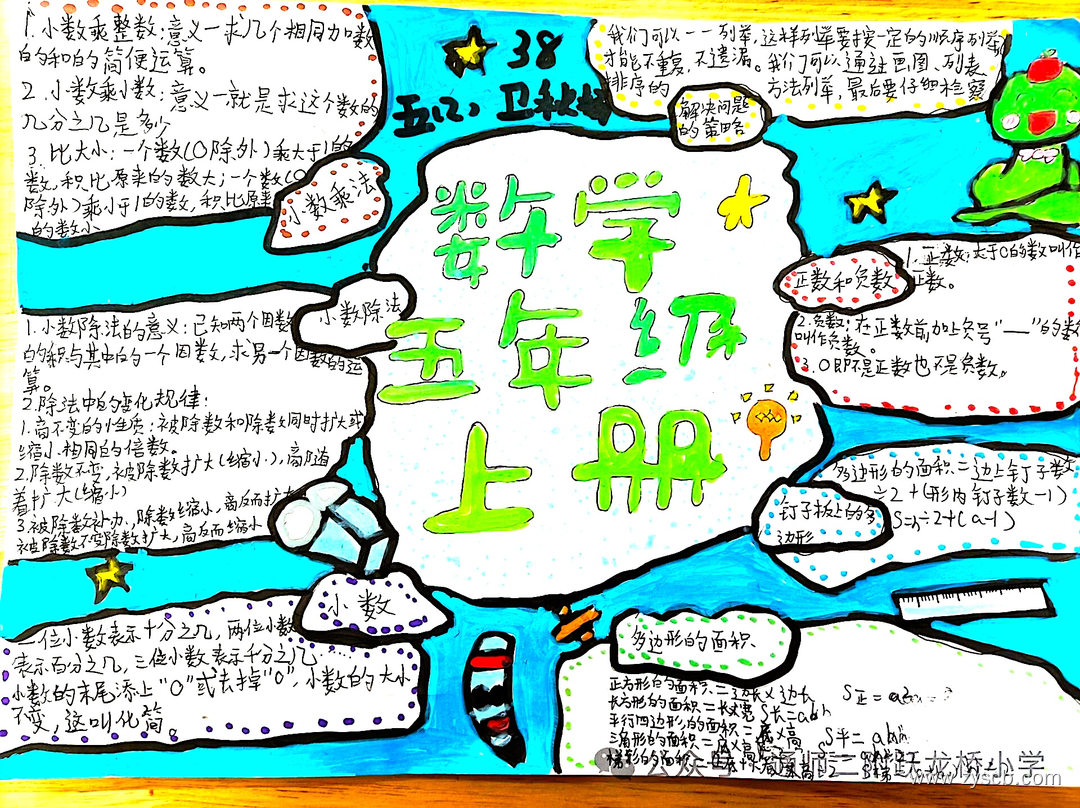 1.小数乘整数:意义一求几个相同加数
的和的简便运算。
2.小数乘小数:意义一就是求这个数的
几分之几是多少
3.比大小:一个数(0除外)乘大于1的
数,积比原来的数大;一个数(0
除外)乘小于1的数,积比原
的数小
小数乘法
38
五(2)
我们可以一一列举,这样列举要按一定的顺序列举
才能不重复,不遗漏。我们可以通过画图、列表
排序的
方法列举,最后要仔细检察
解决问题
的策略
数学
五年级
上册
正数和负数
1.正数:大于0的数叫作
正数。
2.负数:在正数前加上负号"—"的数
叫作负数。
3.0即不是正数也不是负数。
小数除法
1.小数除法的意义:已知两个因数
的积与其中的一个因数,求另一个因数的运
算。
2.除法中的变化规律:
1.商不变的性质:被除数和除数同时扩大或
缩小相同的倍数。
2.除数不变,被除数扩大(缩小),商随
着扩大(缩小)
3.被除数不,除数缩小,商反而扩大
被除数不变除数扩大,商反而缩小
钉子板上的多
边形
多边形的面积=边上钉子数
÷2+(形内钉子数-1)
S=n÷2+(a-1)
小数
一位小数表示十分之几,两位小数
表示百分之几,三位小数表示千分之几……
小数的末尾添上"0"或去掉"0",小数的大小
不变,这叫化简。
多边形的面积
正方形的面积=边长×边长 S正=
长方形的面积=长×宽 S长=ab
平行四边形的面积=底×高 S平=
三角形的面积=底×高
梯形的面积=
公众号
跃龙桥小学
www.zyscb.com